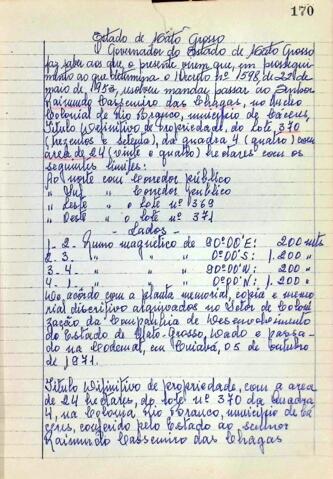 170
Estado de Mato Grosso
Governador do Estado de Mato Grosso
faz saber ao que, o presente virem que, em prossegui-
mento ao que determina o Decreto nº 1598, de 22 de
maio de 1953, resolveu mandar passar ao Senhor
Raimundo Cassemiro das Chagas, no Núcleo
Colonial de Rio Branco, município de Cáceres,
Título Definitivo de Propriedade, do lote 370
(trezentos e setenta), da quadra 4 (quatro) com
área de 24 (vinte e quatro) hectares com os
seguintes limites:
Ao norte com Corredor público
" Sul " Corredor público
" Leste " o lote nº 369
" Oeste " o lote nº 371
- Lados -
1 - 2 - Rumo magnético de 90º00'E: 200 mts
2 - 3 - " " " 0º00'S: 1.200 "
3 - 4 - " " " 90º00'W: 200 "
4 - 1 - " " " 0º00'N: 1.200 "
De acôrdo com a planta memorial, copia e memo-
rial discritivo arquivados no Setor de Coloni-
zação da Companhia de Desenvolvimento
do Estado de Mato-Grosso, Dado e passa-
do na Codemat, em Cuiabá, 05 de outubro
de 1971.
Título Difinitivo de propriedade, com a area
de 24 hectares, do lote nº 370 da quadra
4, na Colonia Rio Branco, município de Cá-
ceres, conferido pelo Estado ao senhor
Raimundo Cassemiro das Chagas